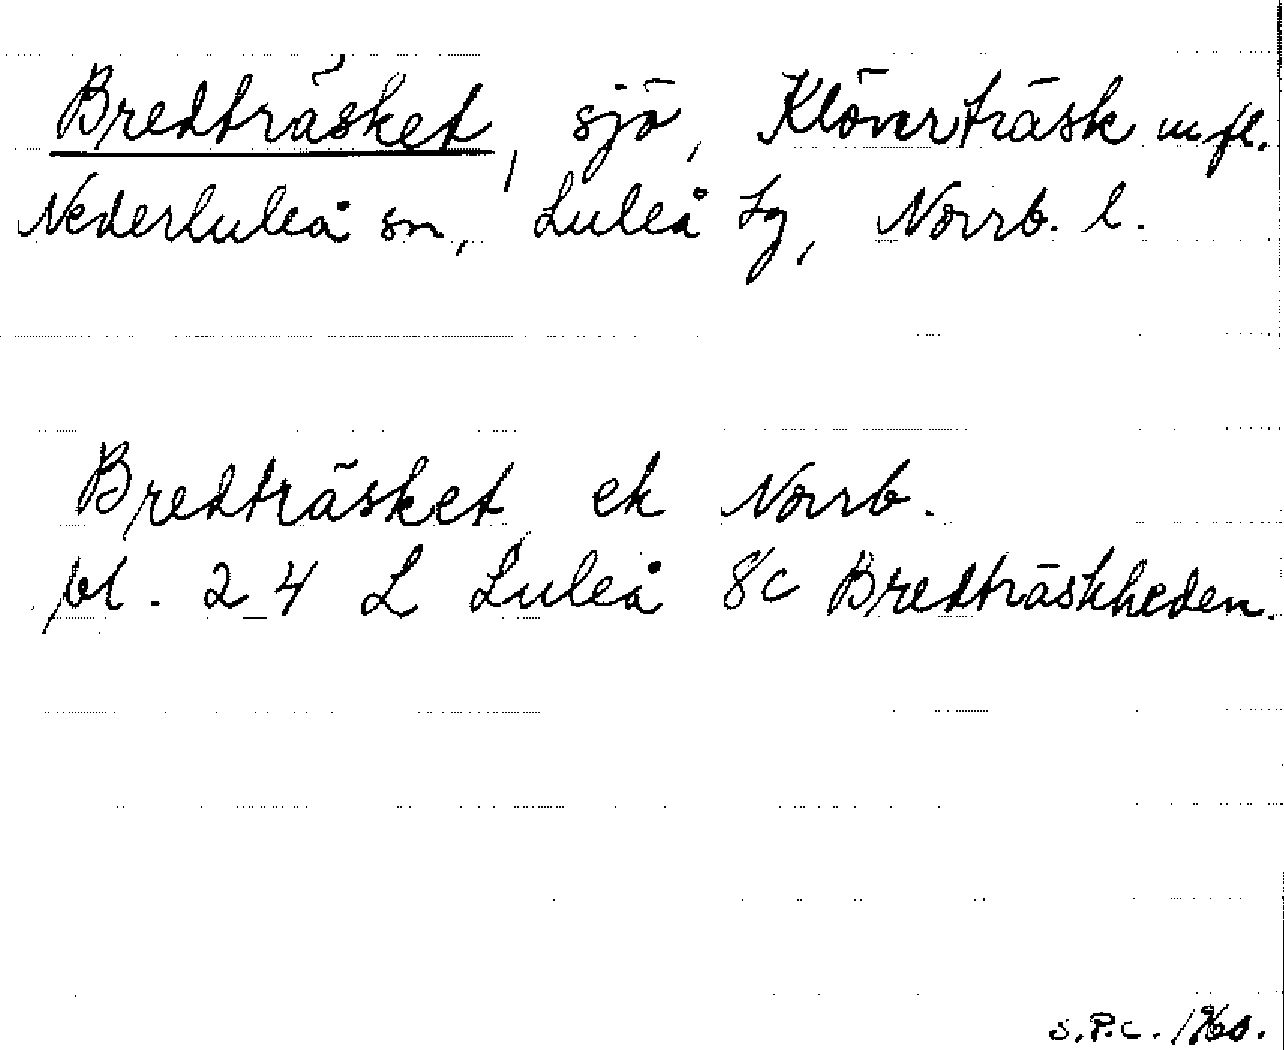 Bredträsket, sjö, Klöverträsk m fl.
Nederluleå sn, Luleå tg, Norrb. l.
Bredträsket ek Norrb.
bl. 24 L Luleå 8c Bredträskheden.
S.P.C. 1960.